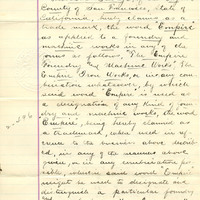 County of San Francisco, State of
California, hereby claims as a
trade mark, the word "Empire"
as applied to a foundry and
machine works in any of the
forms as follows, "The Empire
Foundry and Machine Works," The
Empire Iron Works, or in any com
bination whatsoever, by which
said word Empire is used as
a designation of any kind of foun
dry and machine works, the word
Empire, being hereby claimed as
a trademark, when used in refer
ence to the business above mentio
ned, in any of the manner above
given, or in any combination pos
sible, whether said word Empire
might be used to designate and
distinguish a particular foundry